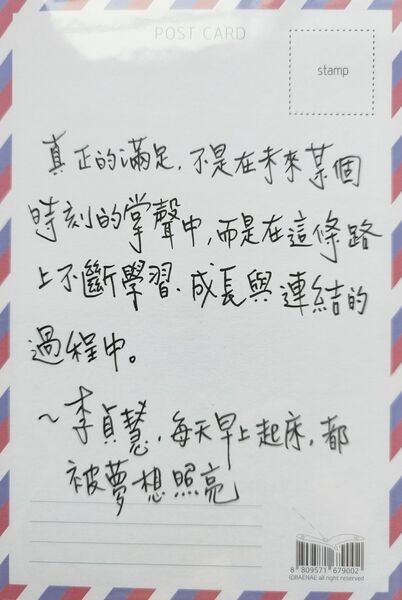 POST CARD
stamp
真正的滿足，不是在未來某個
時刻的掌聲中，而是在這條路
上不斷學習、成長與連結的
過程中。
～李貞慧，每天早上起床，都
被夢想照亮
8 809571 679002
©BAENAE all right reserved